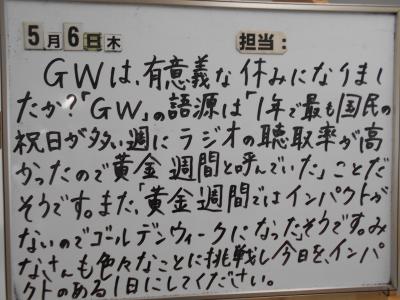 5月6日木 担当：
GWは、有意義な休みになりまし
たか？「GW」の語源は「1年で最も国民の
祝日が多い週にラジオの聴取率が高
かったので黄金週間と呼んでいた」ことだ
そうです。また、「黄金週間ではインパクトが
ないのでゴールデンウィークになった。そうです。み
なさんも色々なことに挑戦し今日を、インパ
クトのある1日にしてください。